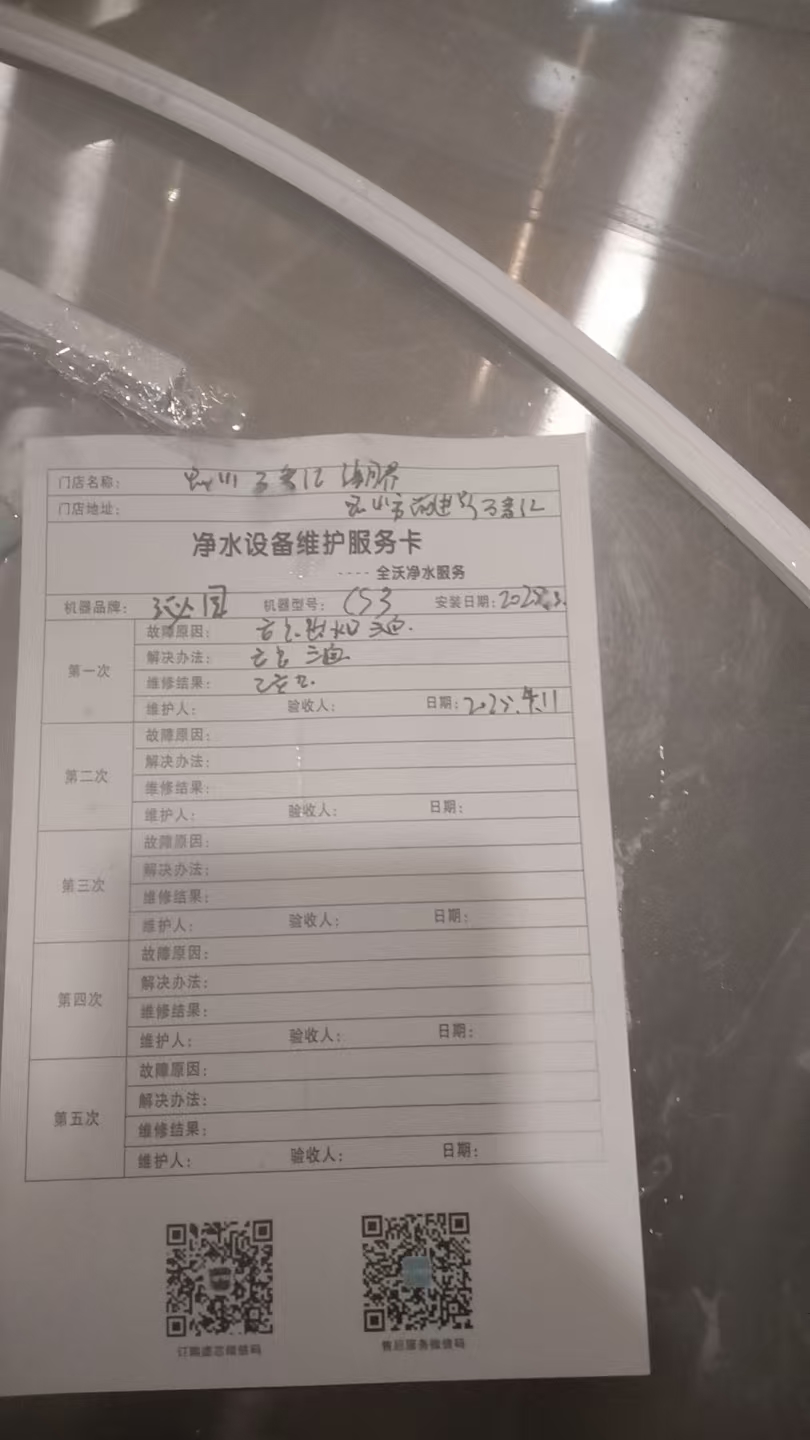 门店名称：
门店地址：
净水设备维护服务卡
---- 全沃净水服务
机器品牌： 机器型号：CS3 安装日期：
第一次
故障原因：
解决办法：
维修结果：
维护人： 验收人： 日期：2025.4.11
第二次
故障原因：
解决办法：
维修结果：
维护人： 验收人： 日期：
第三次
故障原因：
解决办法：
维修结果：
维护人： 验收人： 日期：
第四次
故障原因：
解决办法：
维修结果：
维护人： 验收人： 日期：
第五次
故障原因：
解决办法：
维修结果：
维护人： 验收人： 日期：
订购滤芯微信码 售后服务微信码